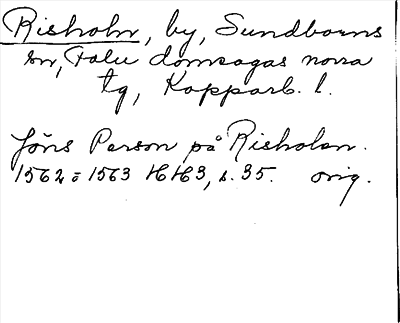 Risholn, by, Sundborns
sn, Falu domsagas norra
tg, Kopparb. l.
Jöns Person på Risholen.
1562 = 1563 HH3, s. 35. orig.